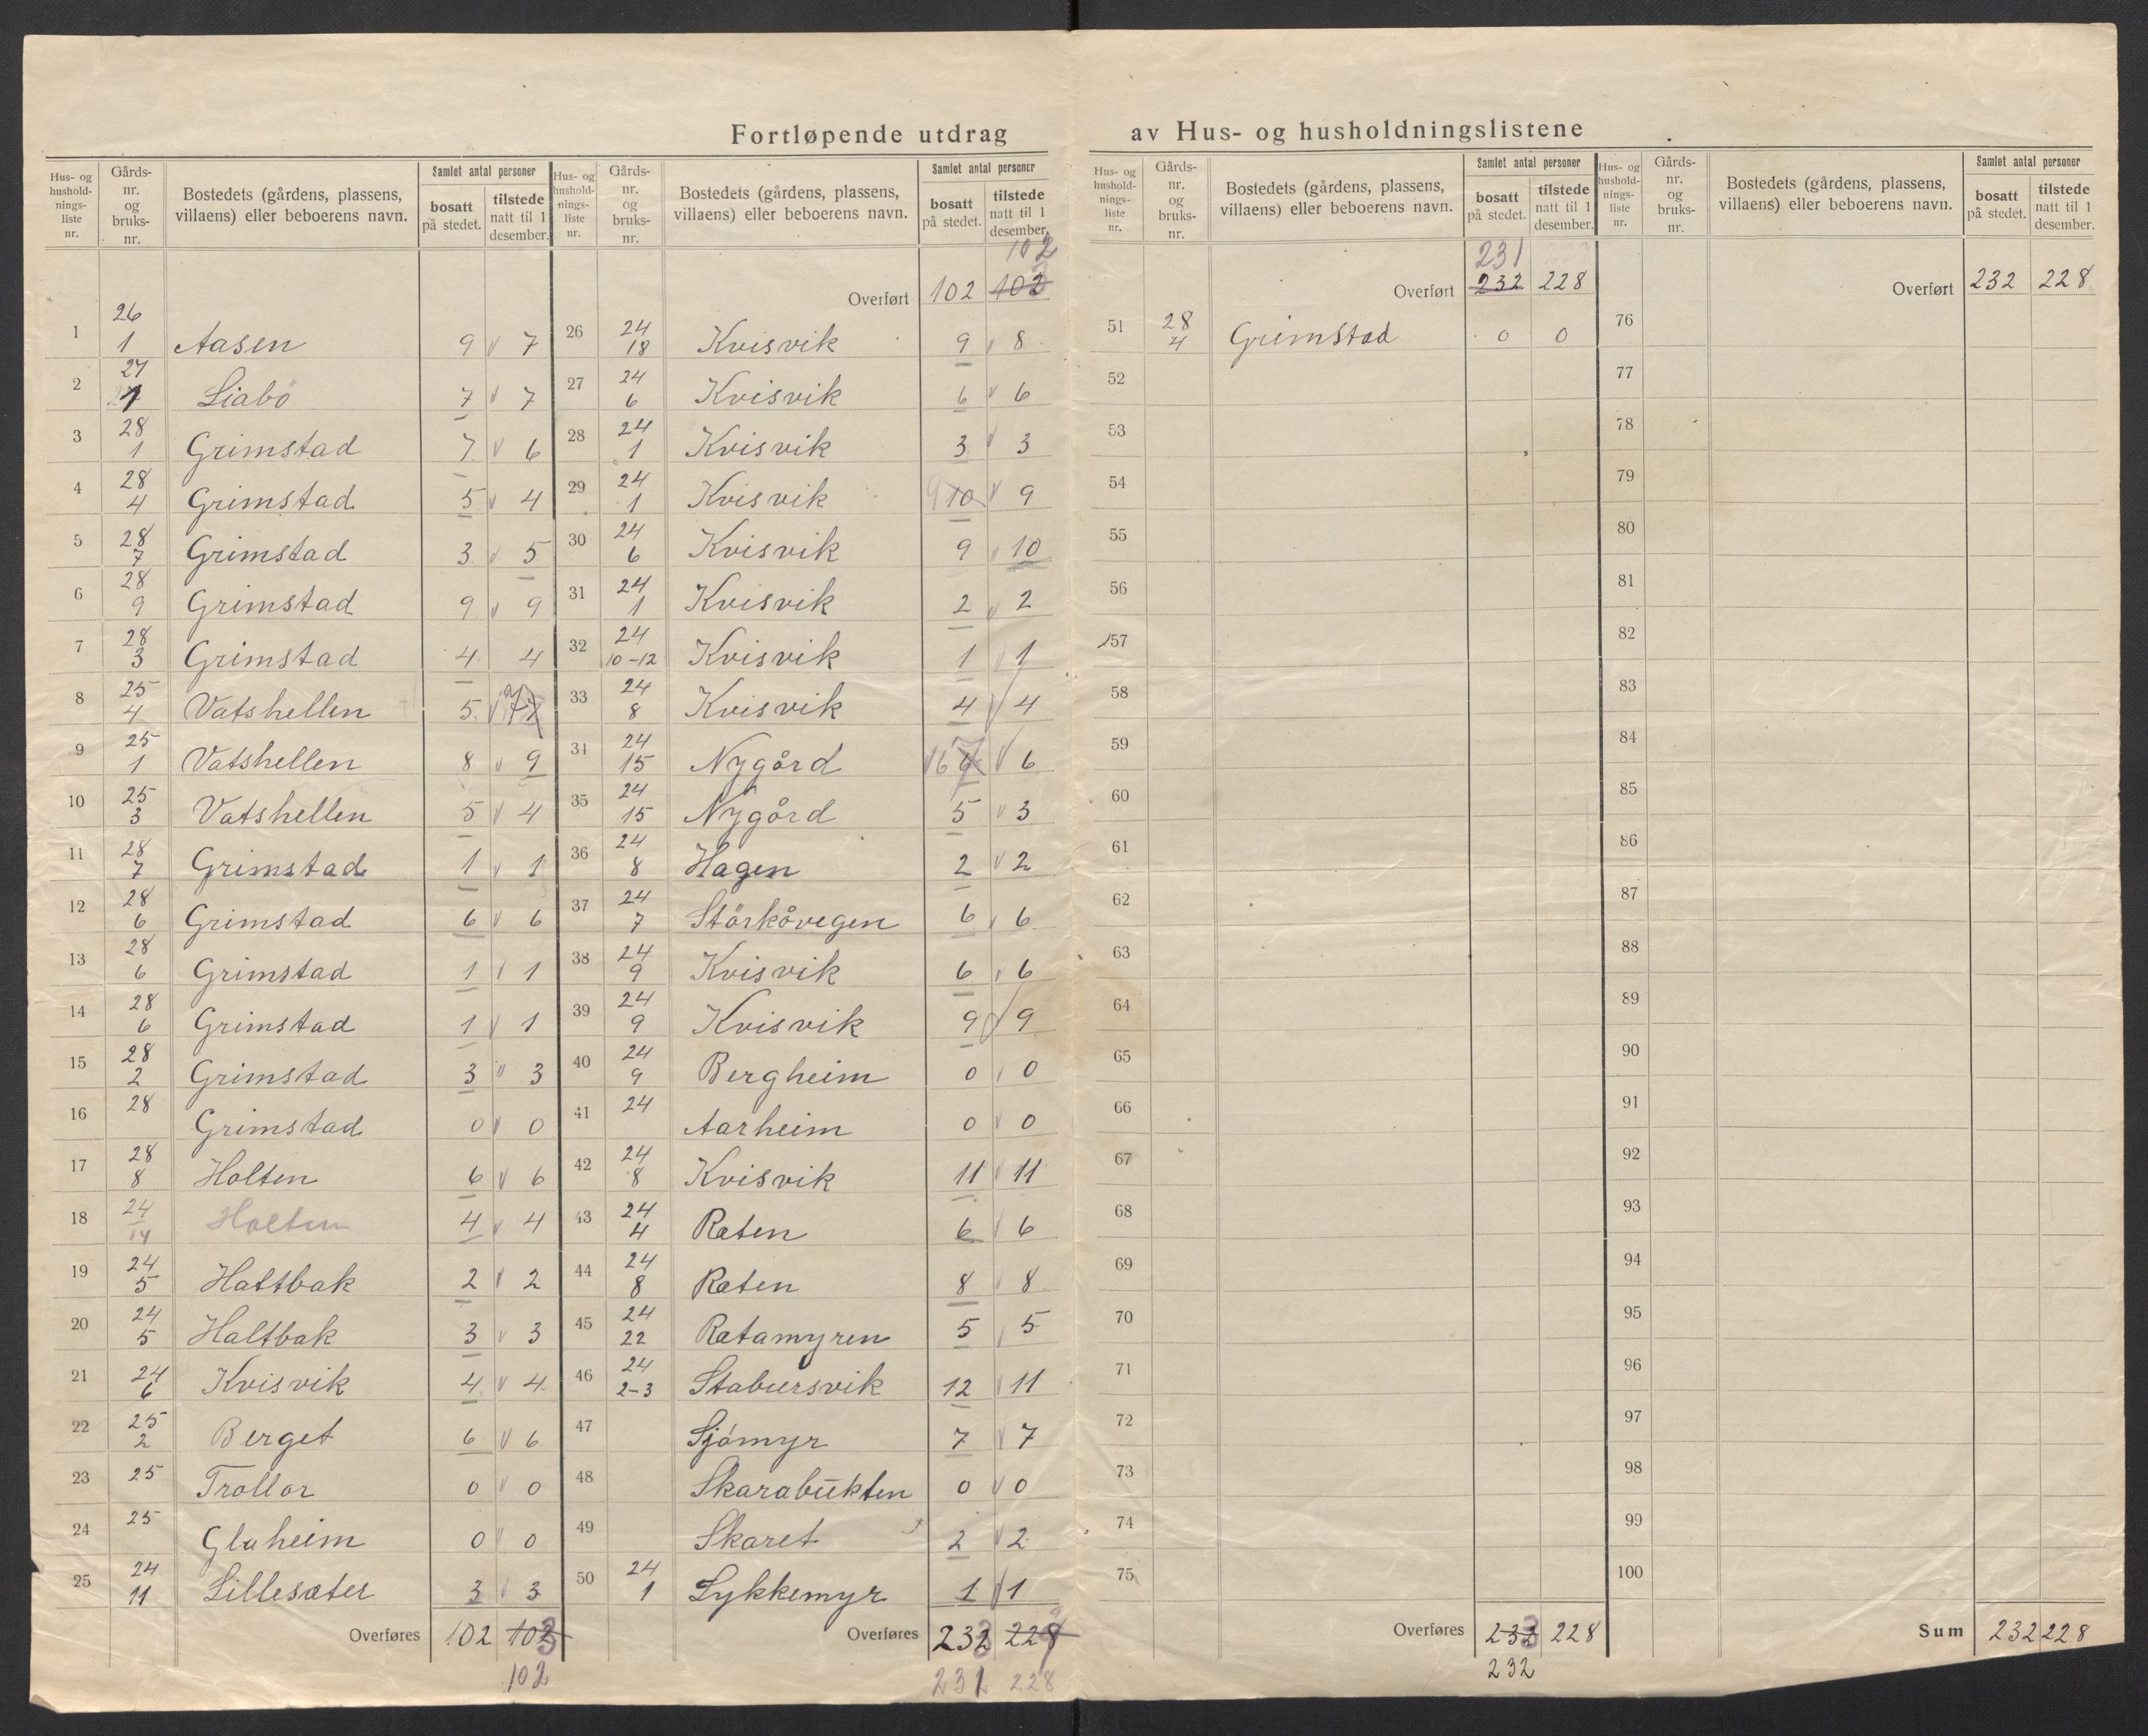 Fortløpende utdrag av Hus- og husholdningslistene
Hus- og hushold- nings- liste nr. Gårds- nr. og bruks- nr. Bostedets (gårdens, plassens, villaens) eller beboerens navn. Samlet antal personer bosatt på stedet. tilstede natt til 1 desember.
1 26 1 Aasen 9 7
2 27 1 Liabø 7 7
3 28 1 Grimstad 7 6
4 28 4 Grimstad 5 4
5 28 7 Grimstad 3 5
6 28 9 Grimstad 9 9
7 28 3 Grimstad 4 4
8 25 4 Vatshellen 5
9 25 1 Vatshellen 8 9
10 25 3 Vatshellen 5 4
11 28 7 Grimstad 1 1
12 28 6 Grimstad 6 6
13 28 6 Grimstad 1 1
14 28 6 Grimstad 1 1
15 28 2 Grimstad 3 3
16 28 Grimstad 0 0
17 28 8 Holten 6 6
18 24 14 Holten 4 4
19 24 5 Hattbak 2 2
20 24 5 Haltbak 3 3
21 24 6 Kvisvik 4 4
22 25 2 Berget 6 6
23 25 Trollor 0 0
24 25 Glaheim 0 0
25 24 11 Lillesæter 3 3
Overføres 102 103
102
Hus- og hushold- nings- liste nr. Gårds- nr. og bruks- nr. Bostedets (gårdens, plassens, villaens) eller beboerens navn. Samlet antal personer bosatt på stedet. tilstede natt til 1 desember.
102
Overført 102 102
26 24 18 Kvisvik 9 8
27 24 6 Kvisvik 6 6
28 24 1 Kvisvik 3 3
29 24 1 Kvisvik 9 10 9
30 24 6 Kvisvik 9 10
31 24 1 Kvisvik 2 2
32 24 10-12 Kvisvik 1 1
33 24 8 Kvisvik 4 4
34 24 15 Nygård 6 7 6
35 24 15 Nygård 5 3
36 24 8 Hagen 2 2
37 24 7 Störkåvegen 6 6
38 24 9 Kvisvik 6 6
39 24 9 Kvisvik 9 9
40 24 9 Bergheim 0 0
41 24 Aarheim 0 0
42 24 8 Kvisvik 11 11
43 24 4 Røten 6 6
44 24 8 Røten 8 8
45 24 22 Røtamyren 5 5
46 24 2-3 Stabursvik 12 11
47 Sjömyr 7 7
48 Skarabukten 0 0
49 Skaret 2 2
50 24 1 Lykkemyr 1 1
Overføres 232 228
231 228
Hus- og hushold- nings- liste nr. Gårds- nr. og bruks- nr. Bostedets (gårdens, plassens, villaens) eller beboerens navn. Samlet antal personer bosatt på stedet. tilstede natt til 1 desember.
231
Overført 232 228
51 28 4 Grimstad 0 0
52
53
54
55
56
57
58
59
60
61
62
63
64
65
66
67
68
69
70
71
72
73
74
75
Overføres 232 228
232
Hus- og hushold- nings- liste nr. Gårds- nr. og bruks- nr. Bostedets (gårdens, plassens, villaens) eller beboerens navn. Samlet antal personer bosatt på stedet. tilstede natt til 1 desember.
Overført 232 228
76
77
78
79
80
81
82
83
84
85
86
87
88
89
90
91
92
93
94
95
96
97
98
99
100
Sum 232 228